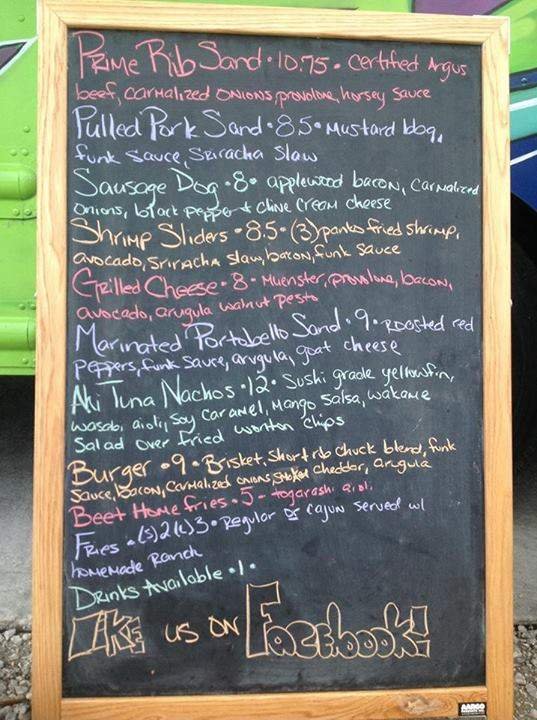 Prime Rib Sand • 10.75 • certified Angus
beef, carmalized onions, provolone, horsey sauce
Pulled Pork Sand • 8.5 • mustard bbq,
funk sauce, Sriracha Slaw
Sausage Dog • 8 • applewood bacon, carmalized
onions, black pepper + chive cream cheese
Shrimp Sliders • 8.5 • (3) panko fried shrimp,
avocado, Sriracha slaw, bacon, funk sauce
Grilled Cheese • 8 • Muenster, provolone, bacon,
avocado, arugula walnut pesto
Marinated Portobello Sand • 9 • Roasted red
peppers, funk sauce, arugula, goat cheese
Ahi Tuna Nachos • 12 • Sushi grade yellowfin,
wasabi aioli, soy caramel, mango salsa, wakame
Salad over fried wonton chips
Burger • 9 • Brisket, Short rib chuck blend, funk
sauce, bacon, carmalized onions, smoked cheddar, arugula
Beet Home fries • 5 - togarashi aioli
Fries • (s) 2 (L) 3 • Regular or cajun served w/
homemade Ranch
Drinks Available • 1 •
Like us on Facebook!
AARCO